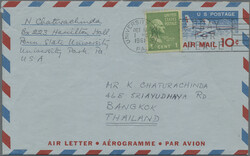 N Chatrachinda
Box 227 Hamilton Hall
Penn. State University
University Park, Pa
U.S.A
1 CENT
U.S. POSTAGE
AIR MAIL 10¢
MR K CHATRACHINDA
ALE TRIAYUDHAYA RD
BANGKOK
THAILAND
AIR LETTER · AÉROGRAMME · PAR AVION